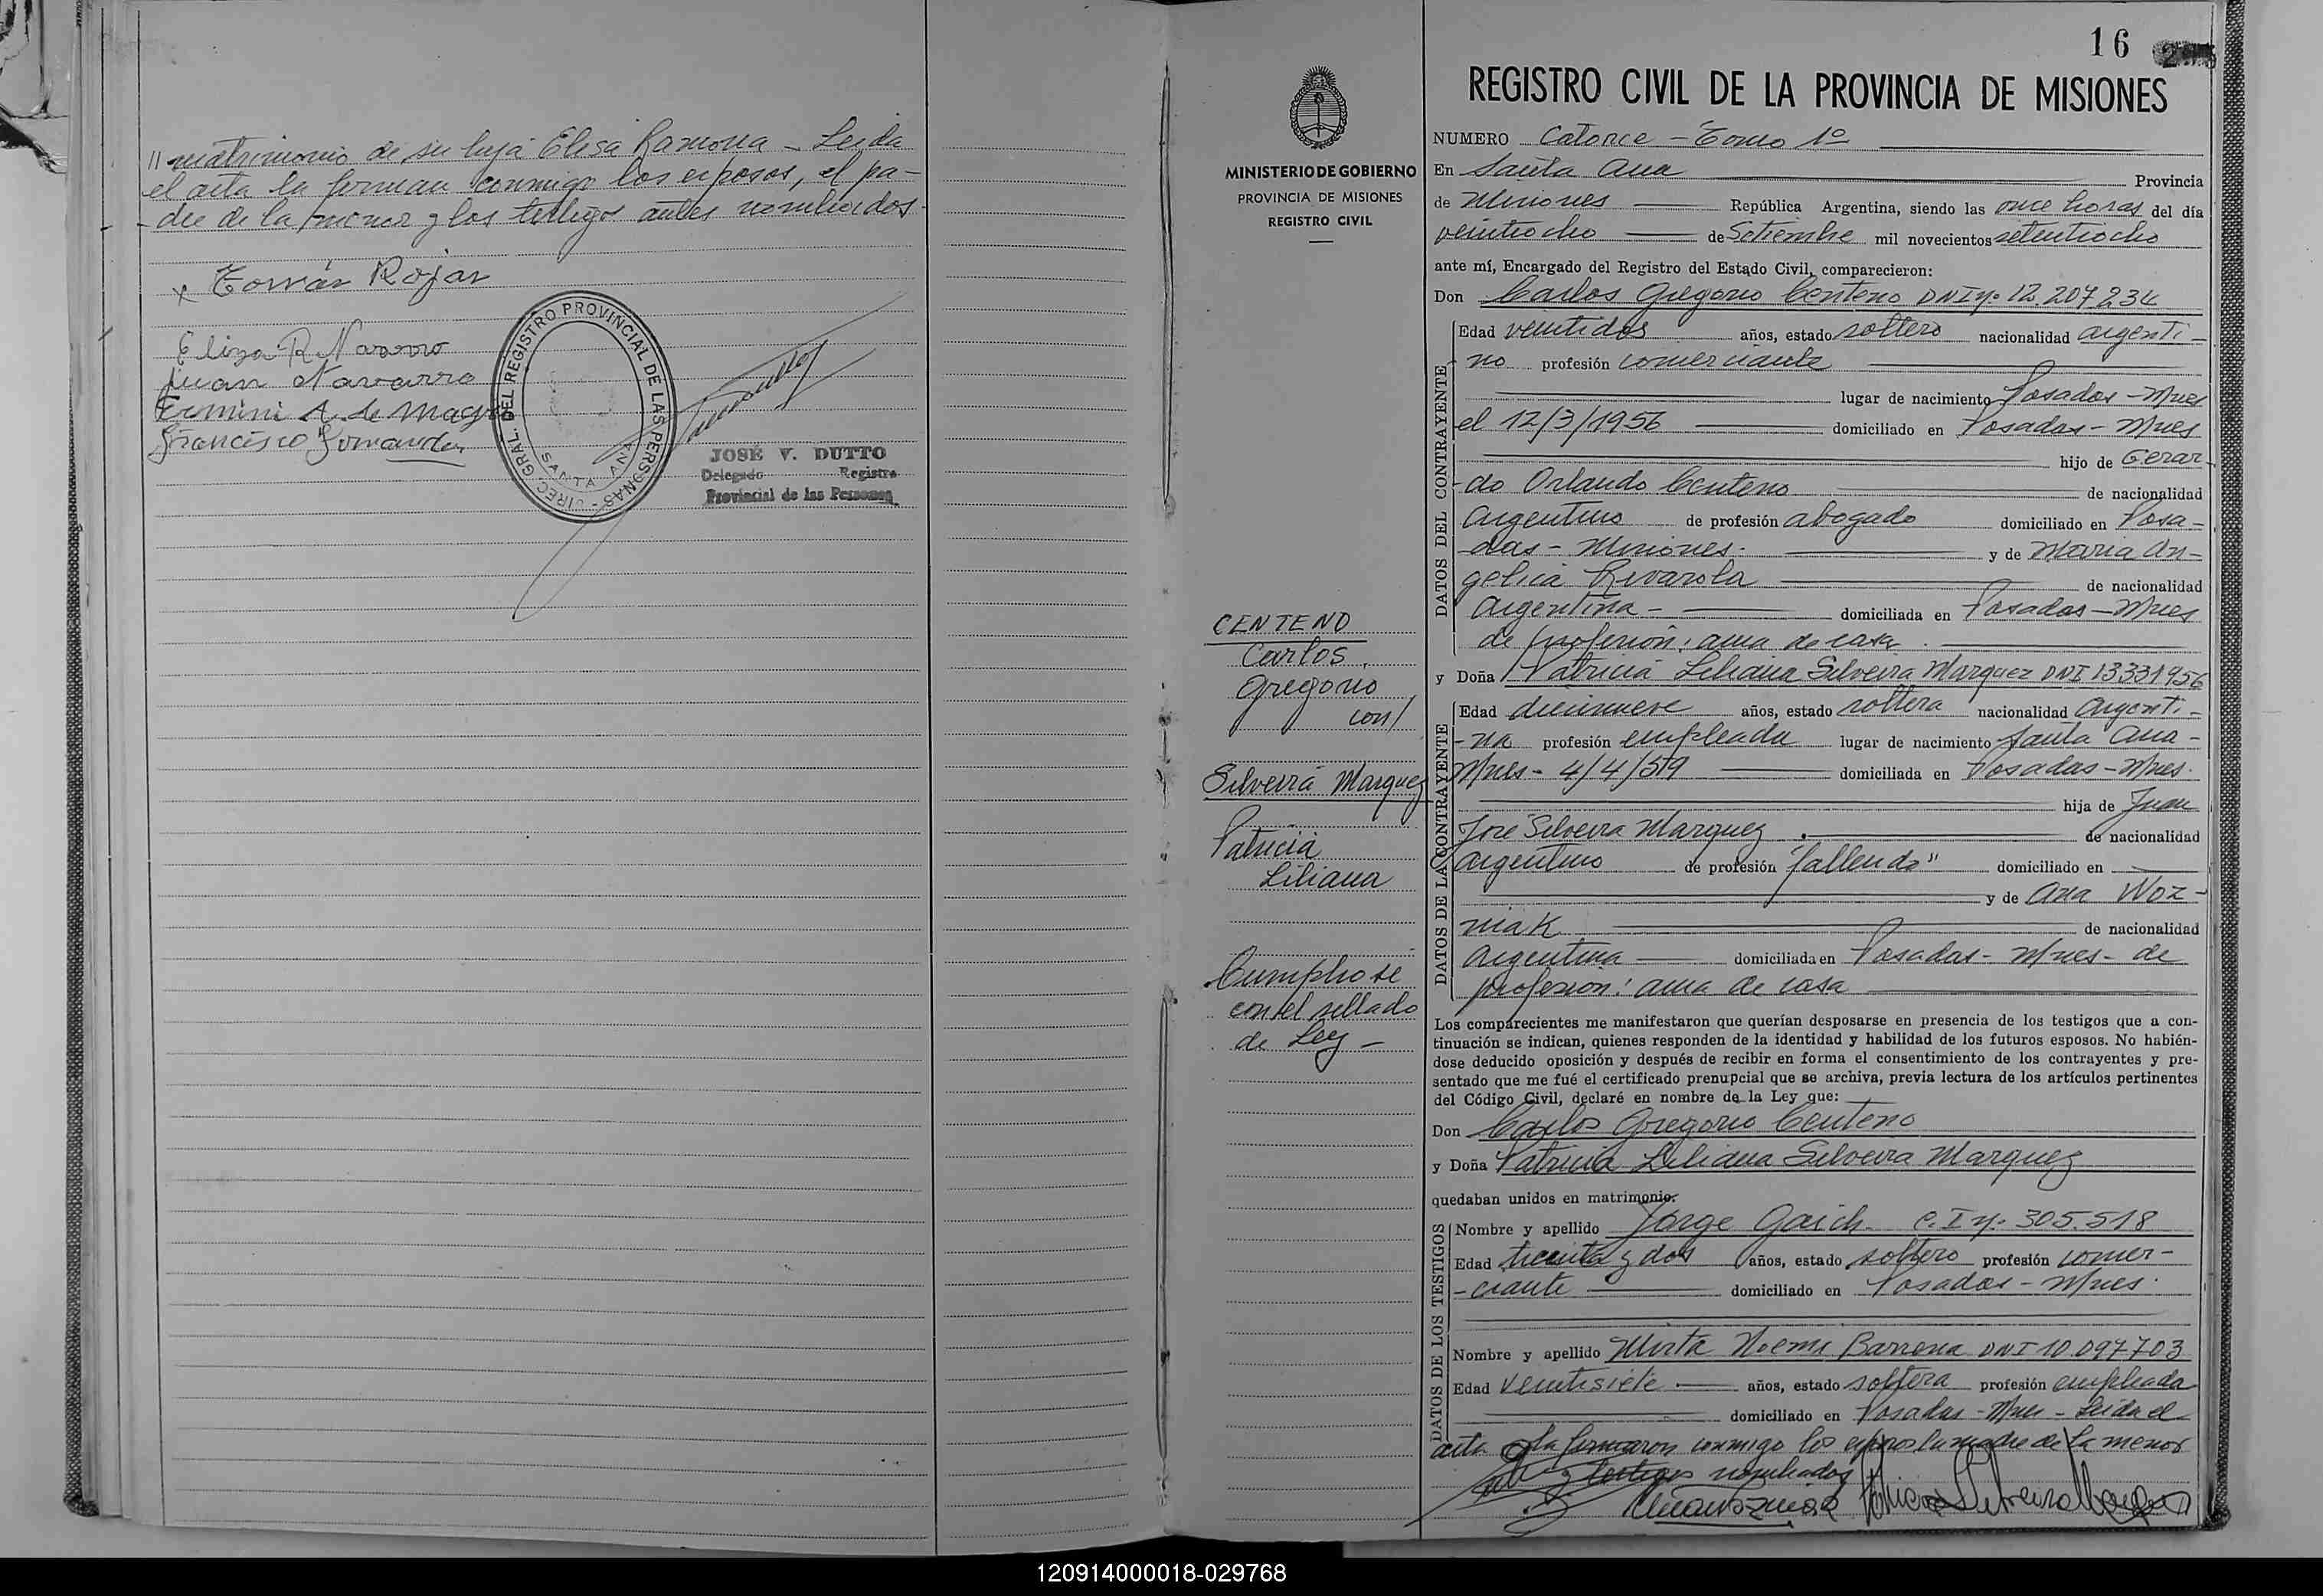 // matrimonio de su hija Elisa Ramona - Leida
el acta la firman conmigo los esposos, el pa-
-dre de la menor y los testigos antes nombrados.
x Tomás Rojas
Eliza R. Navarro
Juan Navarro
Francisco
DIREC. GRAL. DEL REGISTRO PROVINCIAL DE LAS PERSONAS -
SANTA ANA
JOSÉ V. DUTTO
Delegado Registro
Provincial de las Personas
MINISTERIO DE GOBIERNO
PROVINCIA DE MISIONES
REGISTRO CIVIL
CENTENO
Carlos
Gregorio
con/
Silveira Marquez
Patricia
Liliana
Cumplióse
con el sellado
de Ley -
16
REGISTRO CIVIL DE LA PROVINCIA DE MISIONES
NUMERO Catorce - Tomo 1º
En Santa Ana Provincia
de Misiones República Argentina, siendo las once horas del día
veintiocho de Setiembre mil novecientos setentiocho
ante mí, Encargado del Registro del Estado Civil, comparecieron:
Don Carlos Gregorio Centeno DNI Nº 12.207.234
Edad veintidos años, estado soltero nacionalidad argenti-
no profesión comerciante
lugar de nacimiento Posadas - Mnes
el 12/3/1956 domiciliado en Posadas - Mnes
hijo de Gerar-
-do Orlando Centeno de nacionalidad
argentino de profesión abogado domiciliado en Posa-
das - Misiones. y de Maria An-
gelica Rivarola de nacionalidad
Argentina - domiciliada en Posadas - Mnes
de profesión: ama de casa.
y Doña Patricia Liliana Silveira Marquez DNI 13331956
Edad diecinueve años, estado soltera nacionalidad argenti-
-na profesión empleada lugar de nacimiento Santa Ana -
Mnes - 4/4/59 domiciliada en Posadas - Mnes.
hija de Juan
José Silveira Marquez. de nacionalidad
argentino de profesión "fallecido" domiciliado en
y de Ana Woz-
niak de nacionalidad
Argentina domiciliada en Posadas - Mnes - de
profesion: ama de casa
Los comparecientes me manifestaron que querían desposarse en presencia de los testigos que a con-
tinuación se indican, quienes responden de la identidad y habilidad de los futuros esposos. No habién-
dose deducido oposición y después de recibir en forma el consentimiento de los contrayentes y pre-
sentado que me fué el certificado prenupcial que se archiva, previa lectura de los artículos pertinentes
del Código Civil, declaré en nombre de la Ley que:
Don Carlos Gregorio Centeno
y Doña Patricia Liliana Silveira Marquez
quedaban unidos en matrimonio.
Nombre y apellido Jorge Gaich. C.I Nº 305.518
Edad treinta y dos años, estado soltero profesión comer-
-ciante domiciliado en Posadas - Mnes.
Nombre y apellido Mirta Noemi Barrena DNI 10.097.703
Edad veintisiete años, estado soltera profesión empleada
domiciliado en Posadas - Mnes - Leida el
acta la firmaron conmigo los esposos la madre de la menor
y testigos nombrados
Ana Wozniak Patricia Silveira Marquez
DATOS DEL CONTRAYENTE
DATOS DE LA CONTRAYENTE
DATOS DE LOS TESTIGOS
120914000018-029768